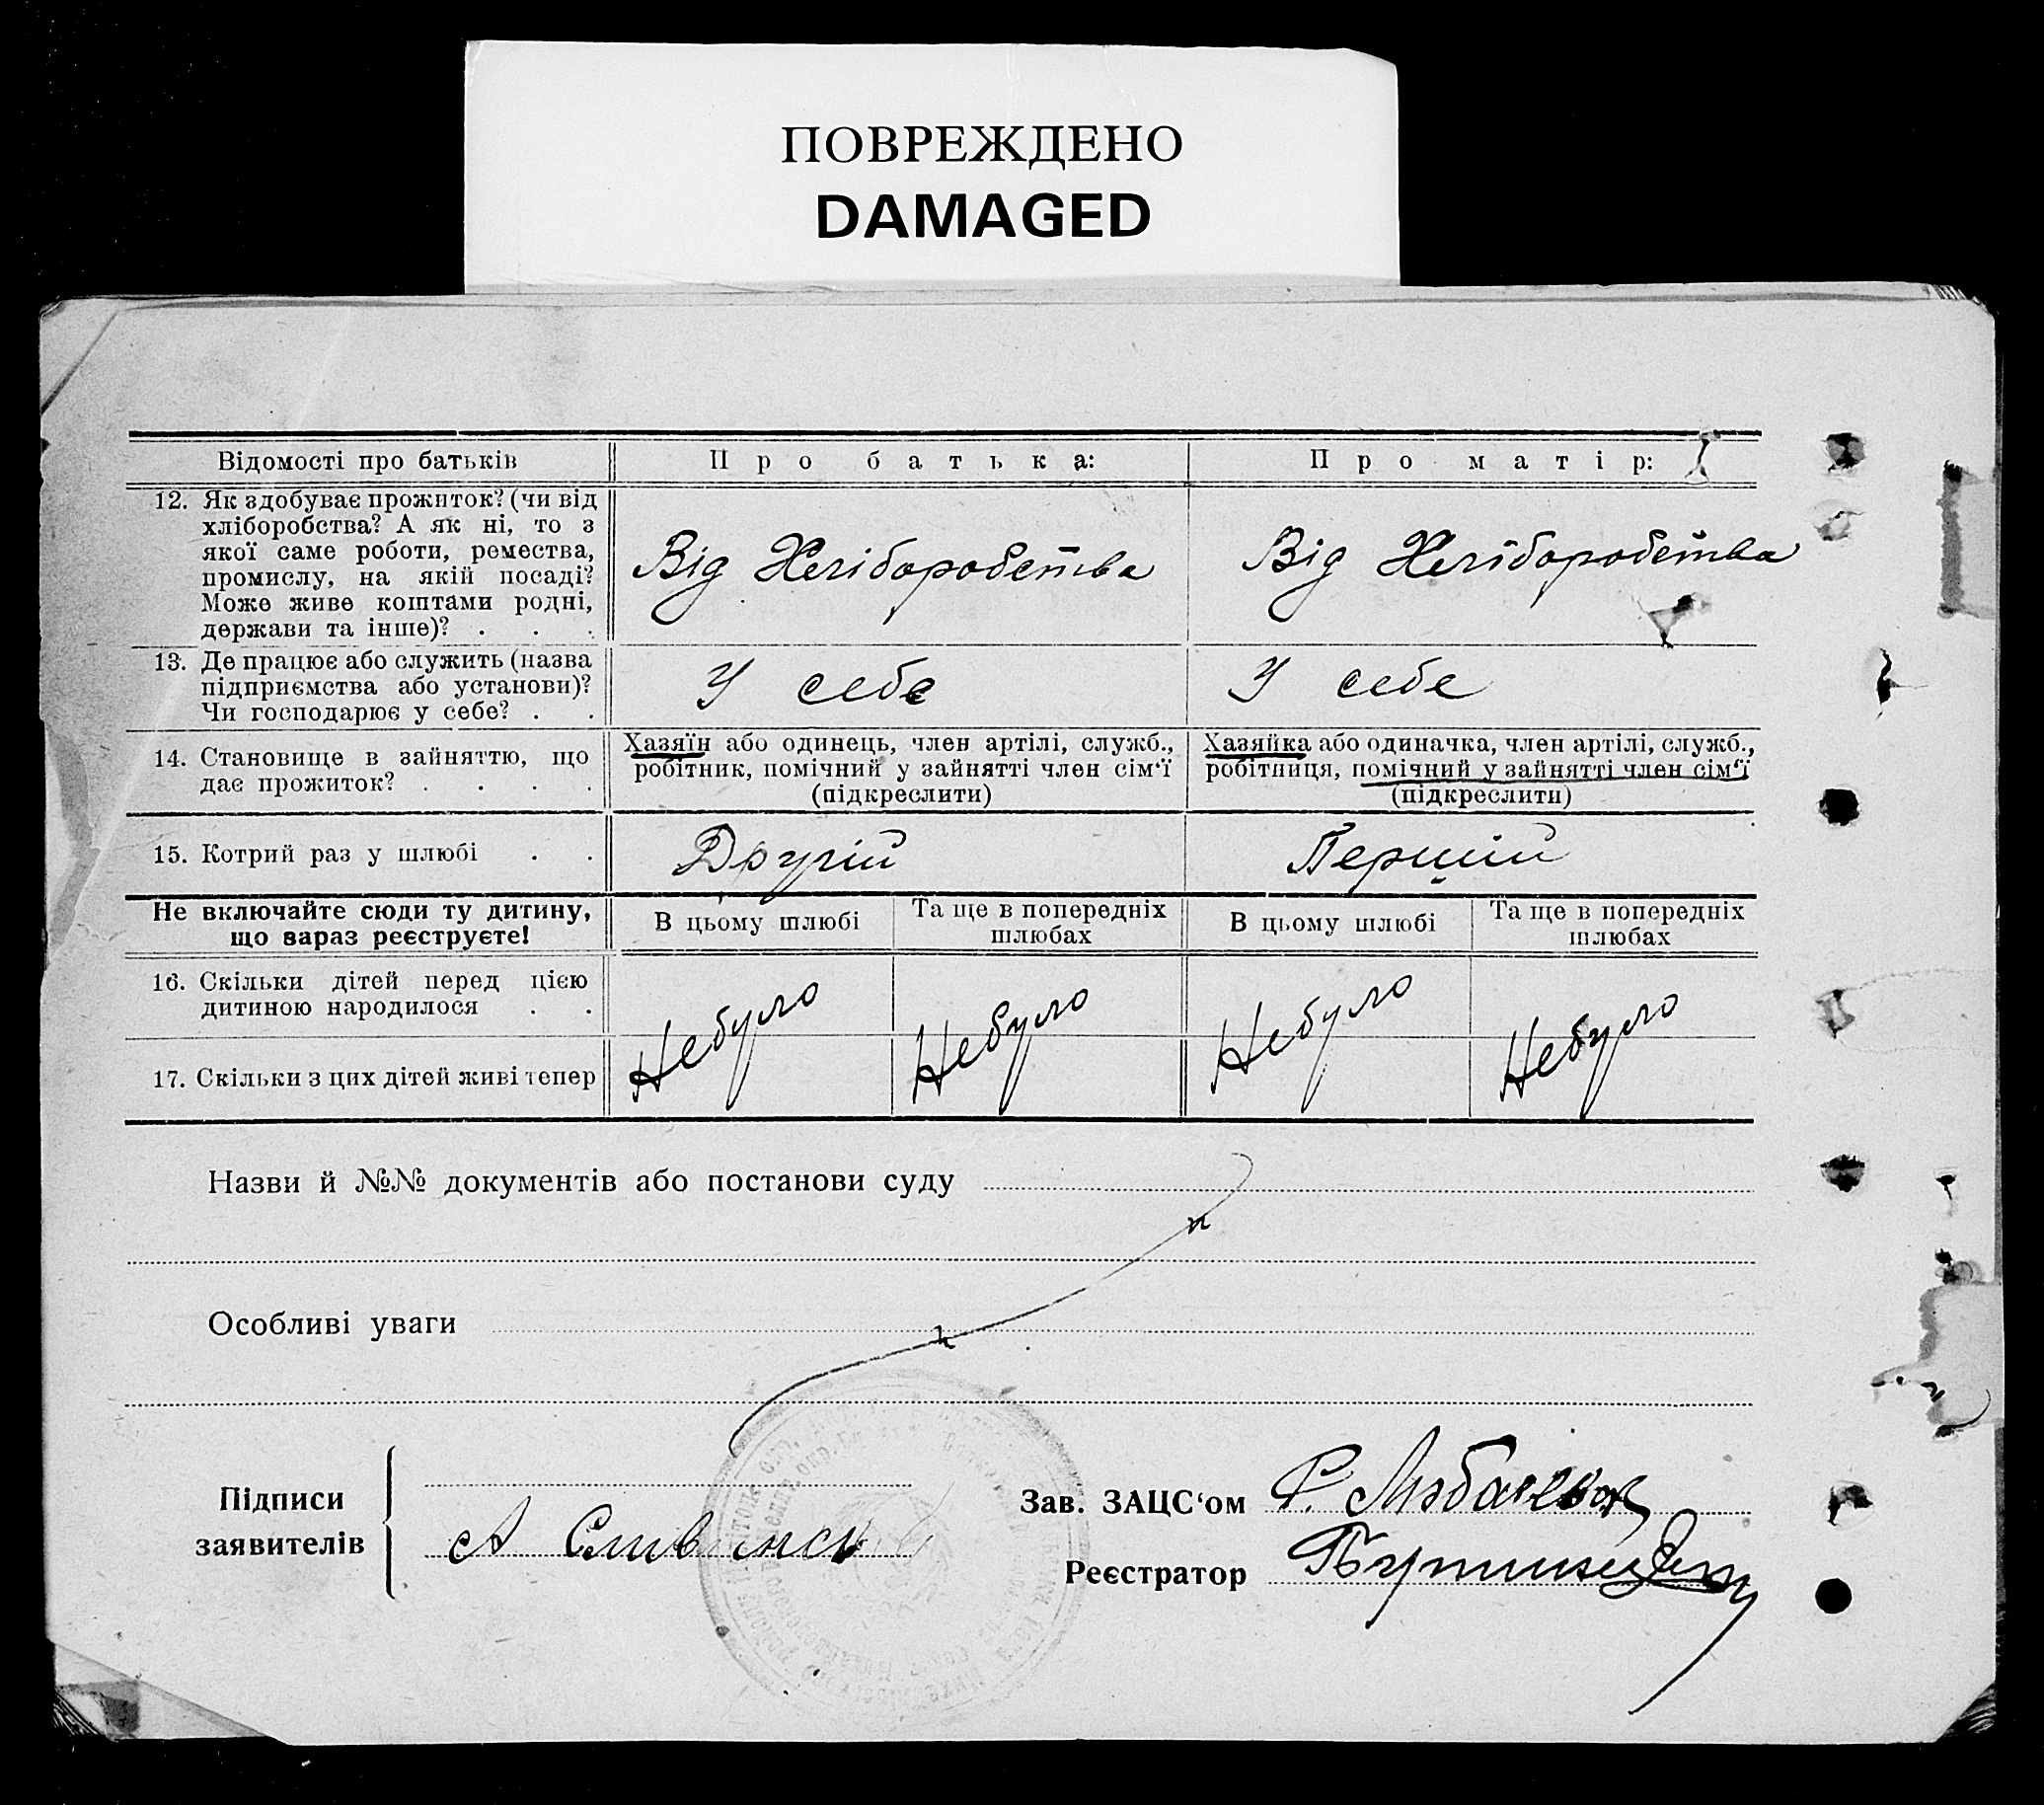 ПОВРЕЖДЕНО
DAMAGED
Відомості про батьків
Про батька:
Про матір:
12. Як здобуває прожиток? (чи від
хліборобства? А як ні, то з
якої саме роботи, ремества,
промислу, на якій посаді?
Може живе коштами родні,
держави та інше)? . . .
Від Хліборобства
Від Хліборобства
13. Де працює або служить (назва
підприємства або установи)?
Чи господарює у себе? . .
У себе
У себе
14. Становище в зайняттю, що
дає прожиток? . . . .
Хазяїн або одинець, член артілі, служб.,
робітник, помічний у зайнятті член сім‘ї
(підкреслити)
Хазяйка або одиначка, член артілі, служб.,
робітниця, помічний у зайнятті член сім‘ї
(підкреслити)
15. Котрий раз у шлюбі . .
Другій
Перший
Не включайте сюди ту дитину,
що зараз реєструєте!
В цьому шлюбі
Та ще в попередніх
шлюбах
В цьому шлюбі
Та ще в попередніх
шлюбах
16. Скільки дітей перед цією
дитиною народилося . .
17. Скільки з цих дітей живі тепер
Небуло
Небуло
Небуло
Небуло
Назви й №№ документів або постанови суду
Особливі уваги
Підписи
заявителів
А
Зав. ЗАЦС‘ом
Реєстратор